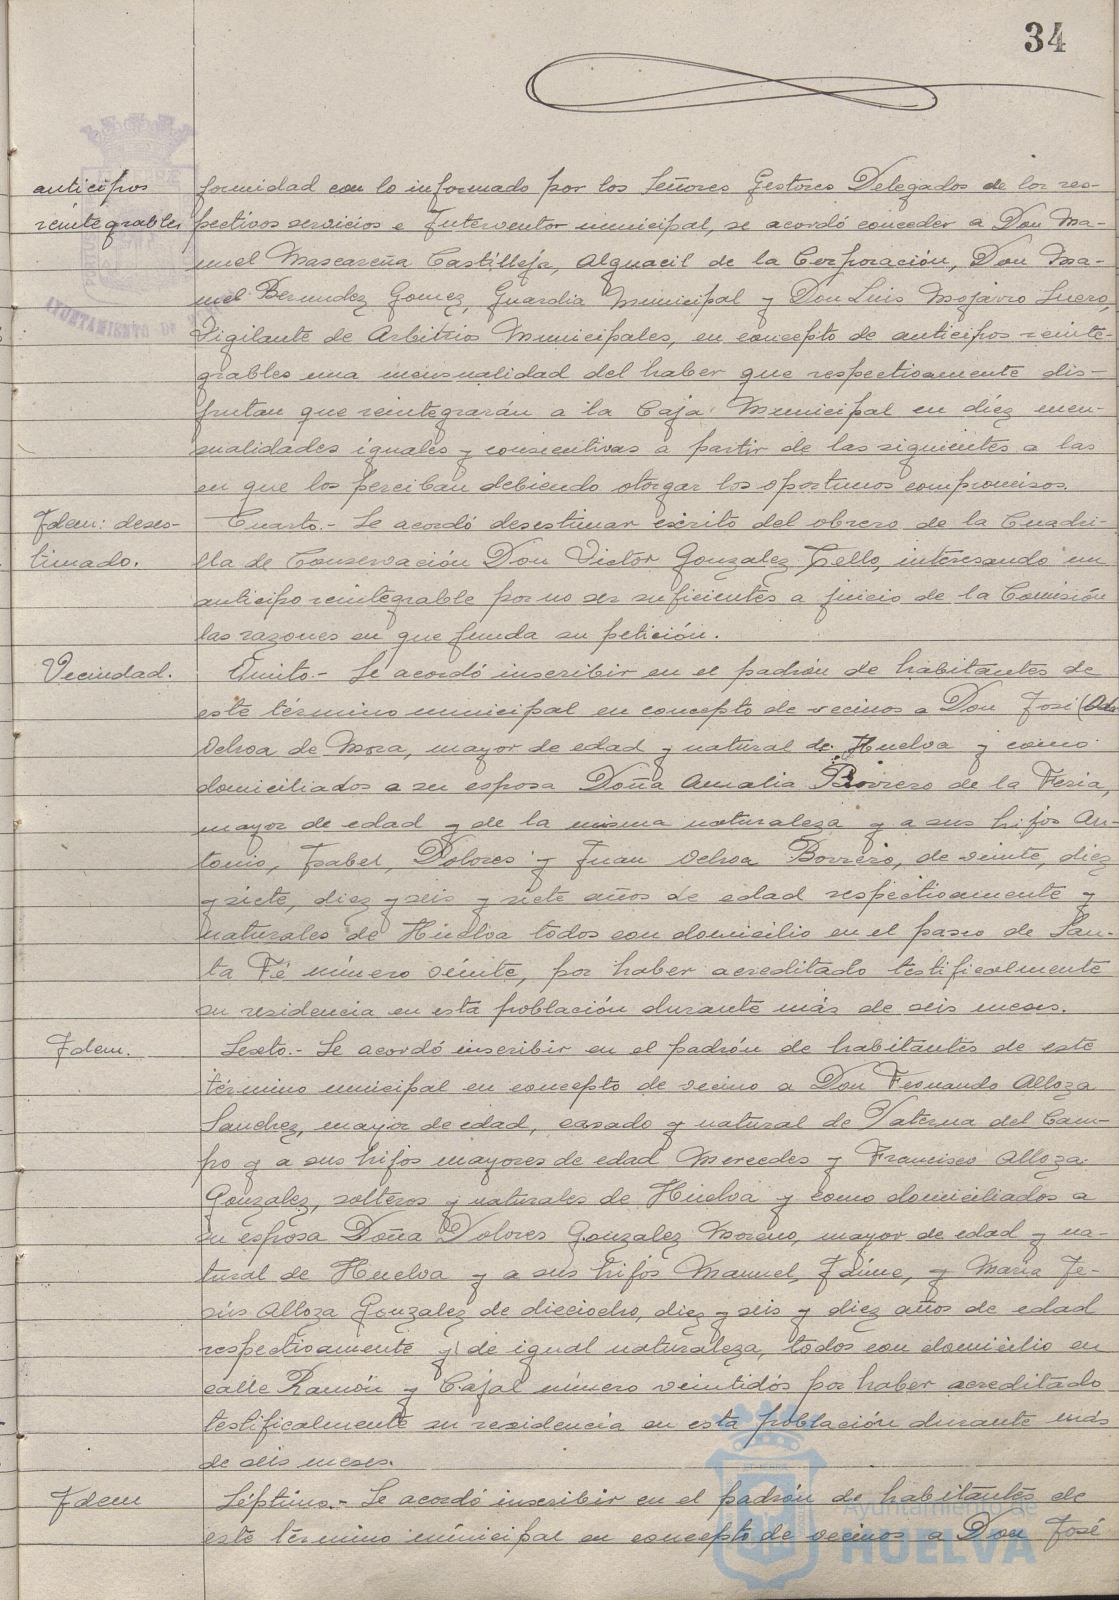 34
anticipos
reintegrables
formidad con lo informado por los Señores Gestores Delegados de los res-
pectivos servicios e Interventor municipal, se acordó conceder a Don Ma-
nuel Mascareña Castilleja, Alguacil de la Corporación, Don Ma-
nuel Bermudez Gomez, Guardia Municipal y Don Luis Mojarro Suero,
Vigilante de Arbitrios Municipales, en concepto de anticipos reinte-
grables una mensualidad del haber que respectivamente dis-
frutan que reintegrarán a la Caja Municipal en diez men-
sualidades iguales y consecutivas a partir de las siguientes a las
en que los perciban debiendo otorgar los oportunos compromisos.
Idem: deses-
timado.
Cuarto.- Se acordó desestimar escrito del obrero de la Cuadri-
lla de Conservación Don Victor Gonzalez Tello, interesando un
anticipo reintegrable por no ser suficientes a juicio de la Comisión
las razones en que funda su petición.
Vecindad.
Quinto.- Se acordó inscribir en el padrón de habitantes de
este término municipal en concepto de vecinos a Don José
Ochoa de Mora, mayor de edad y natural de Huelva y como
domiciliados a su esposa Doña Amalia Borrero de la Feria,
mayor de edad y de la misma naturaleza y a sus hijos An-
tonio, Isabel, Dolores y Juan Ochoa Borrero, de veinte, diez
y siete, diez y seis y siete años de edad respectivamente y
naturales de Huelva todos con domicilio en el paseo de San-
ta Fé número veinte, por haber acreditado testificalmente
su residencia en esta población durante más de seis meses.
Idem.
Sexto.- Se acordó inscribir en el padrón de habitantes de este
término municipal en concepto de vecino a Don Fernando Alloza
Sanchez, mayor de edad, casado y natural de Paterna del Cam-
po y a sus hijos mayores de edad Mercedes y Francisco Alloza
Gonzalez, solteros y naturales de Huelva y como domiciliados a
su esposa Doña Dolores Gonzalez Moreno, mayor de edad y na-
tural de Huelva y a sus hijos Manuel, Jaime, y Maria Je-
sús Alloza Gonzalez de dieciocho, diez y seis y diez años de edad
respectivamente y de igual naturaleza, todos con domicilio en
calle Ramón y Cajal número veintidós por haber acreditado
testificalmente su residencia en esta población durante más
de seis meses.
Idem
Séptimo.- Se acordó inscribir en el padrón de habitantes de
este término municipal en concepto de vecinos a Don José
Ayuntamiento de
HUELVA